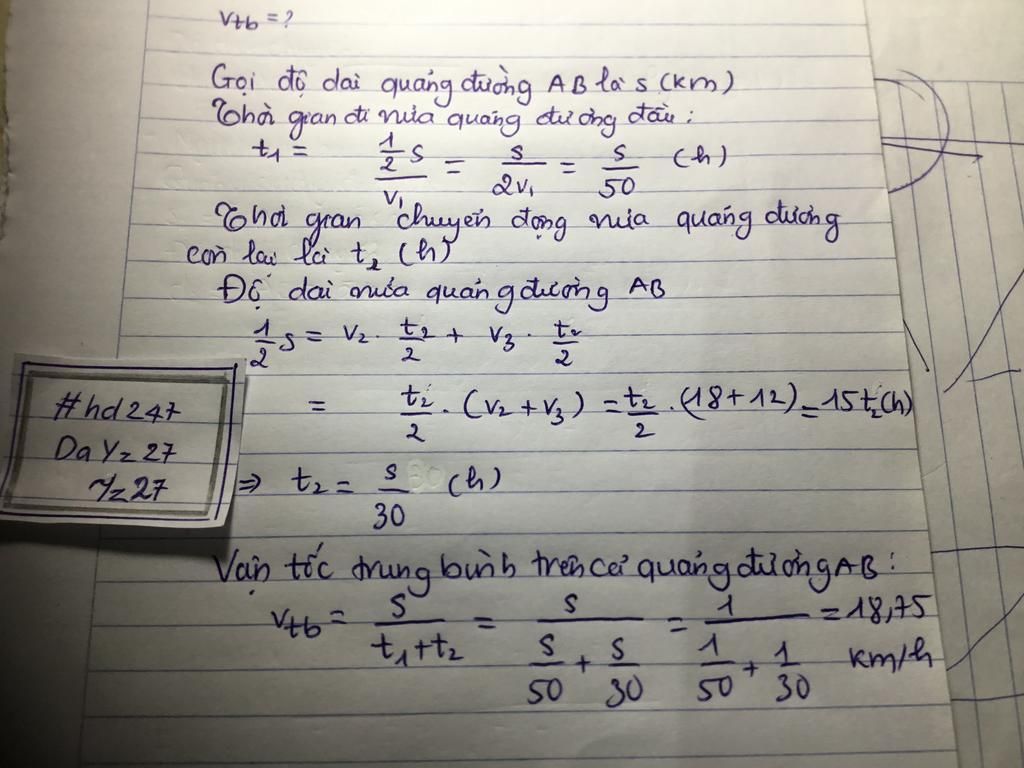 vtb = ?
Gọi độ dài quãng đường AB là s (km)
Thời gian đi nửa quãng đường đầu :
t1 = \frac{\frac{1}{2} s}{v1} = \frac{s}{2v1} = \frac{s}{50} (h)
Thời gian chuyển động nửa quãng đường
còn lại là t2 (h)
Độ dài nửa quãng đường AB
\frac{1}{2} s = v2 . \frac{t2}{2} + v3 . \frac{t2}{2}
= \frac{t2}{2} . (v2 + v3) = \frac{t2}{2} . (18 + 12) = 15 t2 (h)
#hd247
DaYz27
Yz27
⇒ t2 = \frac{s}{30} (h)
Vận tốc trung bình trên cả quãng đường AB :
vtb = \frac{s}{t1 + t2} = \frac{s}{\frac{s}{50} + \frac{s}{30}} = \frac{1}{\frac{1}{50} + \frac{1}{30}} = 18,75
km/h